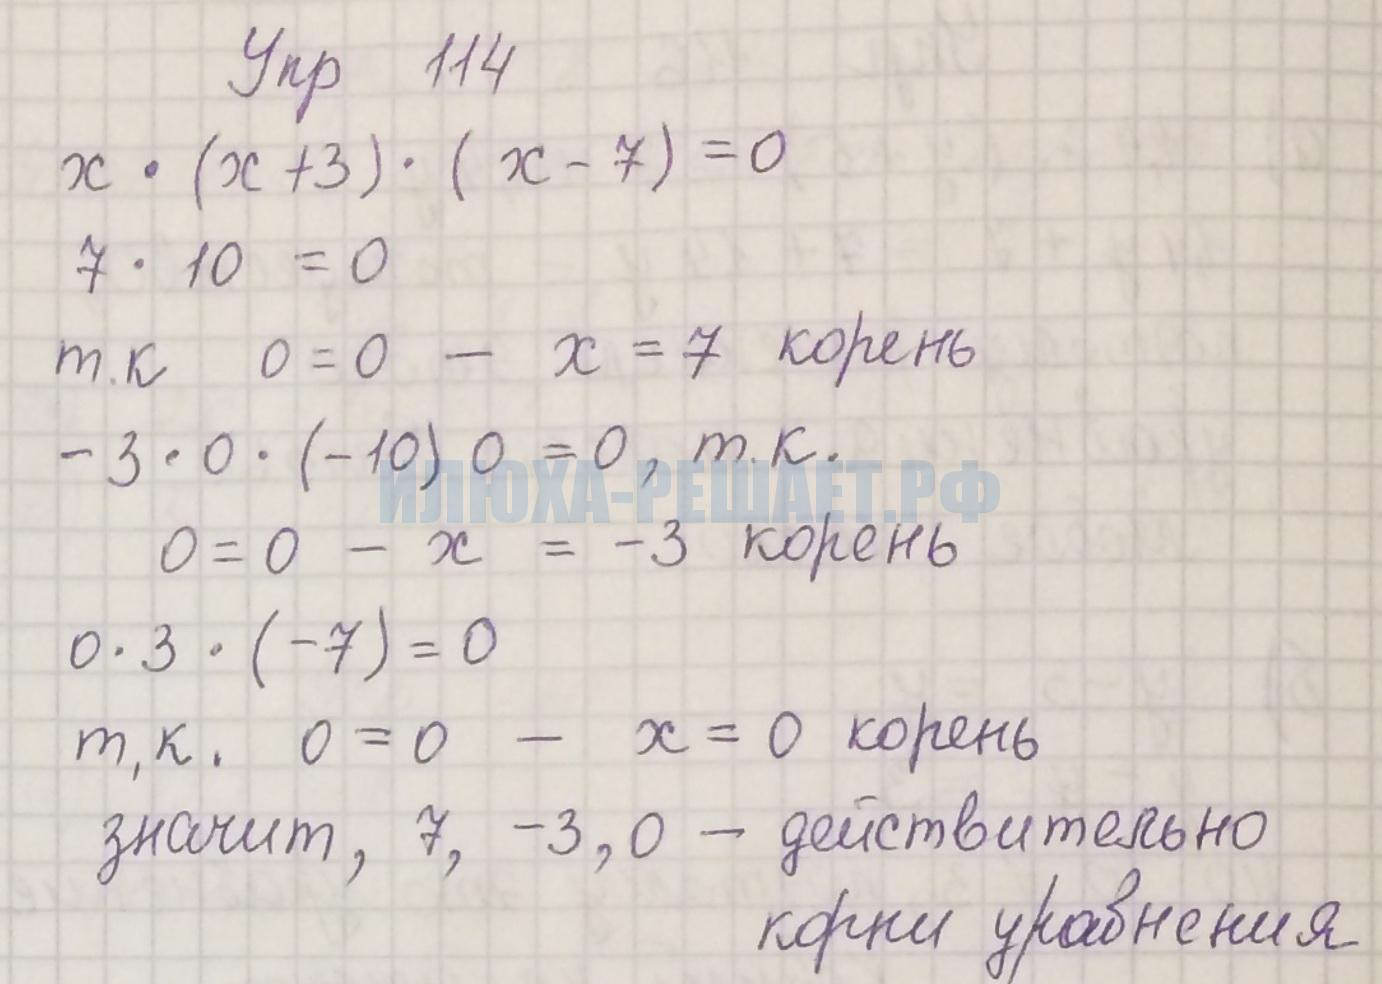 Упр 114
x · (x+3) · (x-7) = 0
7 · 10 = 0
т.к 0=0 — x = 7 корень
-3 · 0 · (-10) 0 = 0, т.к.
ИЛЮХА-РЕШАЕТ.РФ
0=0 - x = -3 корень
0·3 · (-7) = 0
т,к. 0=0 — x = 0 корень
значит, 7, -3, 0 — действительно
корни уравнения